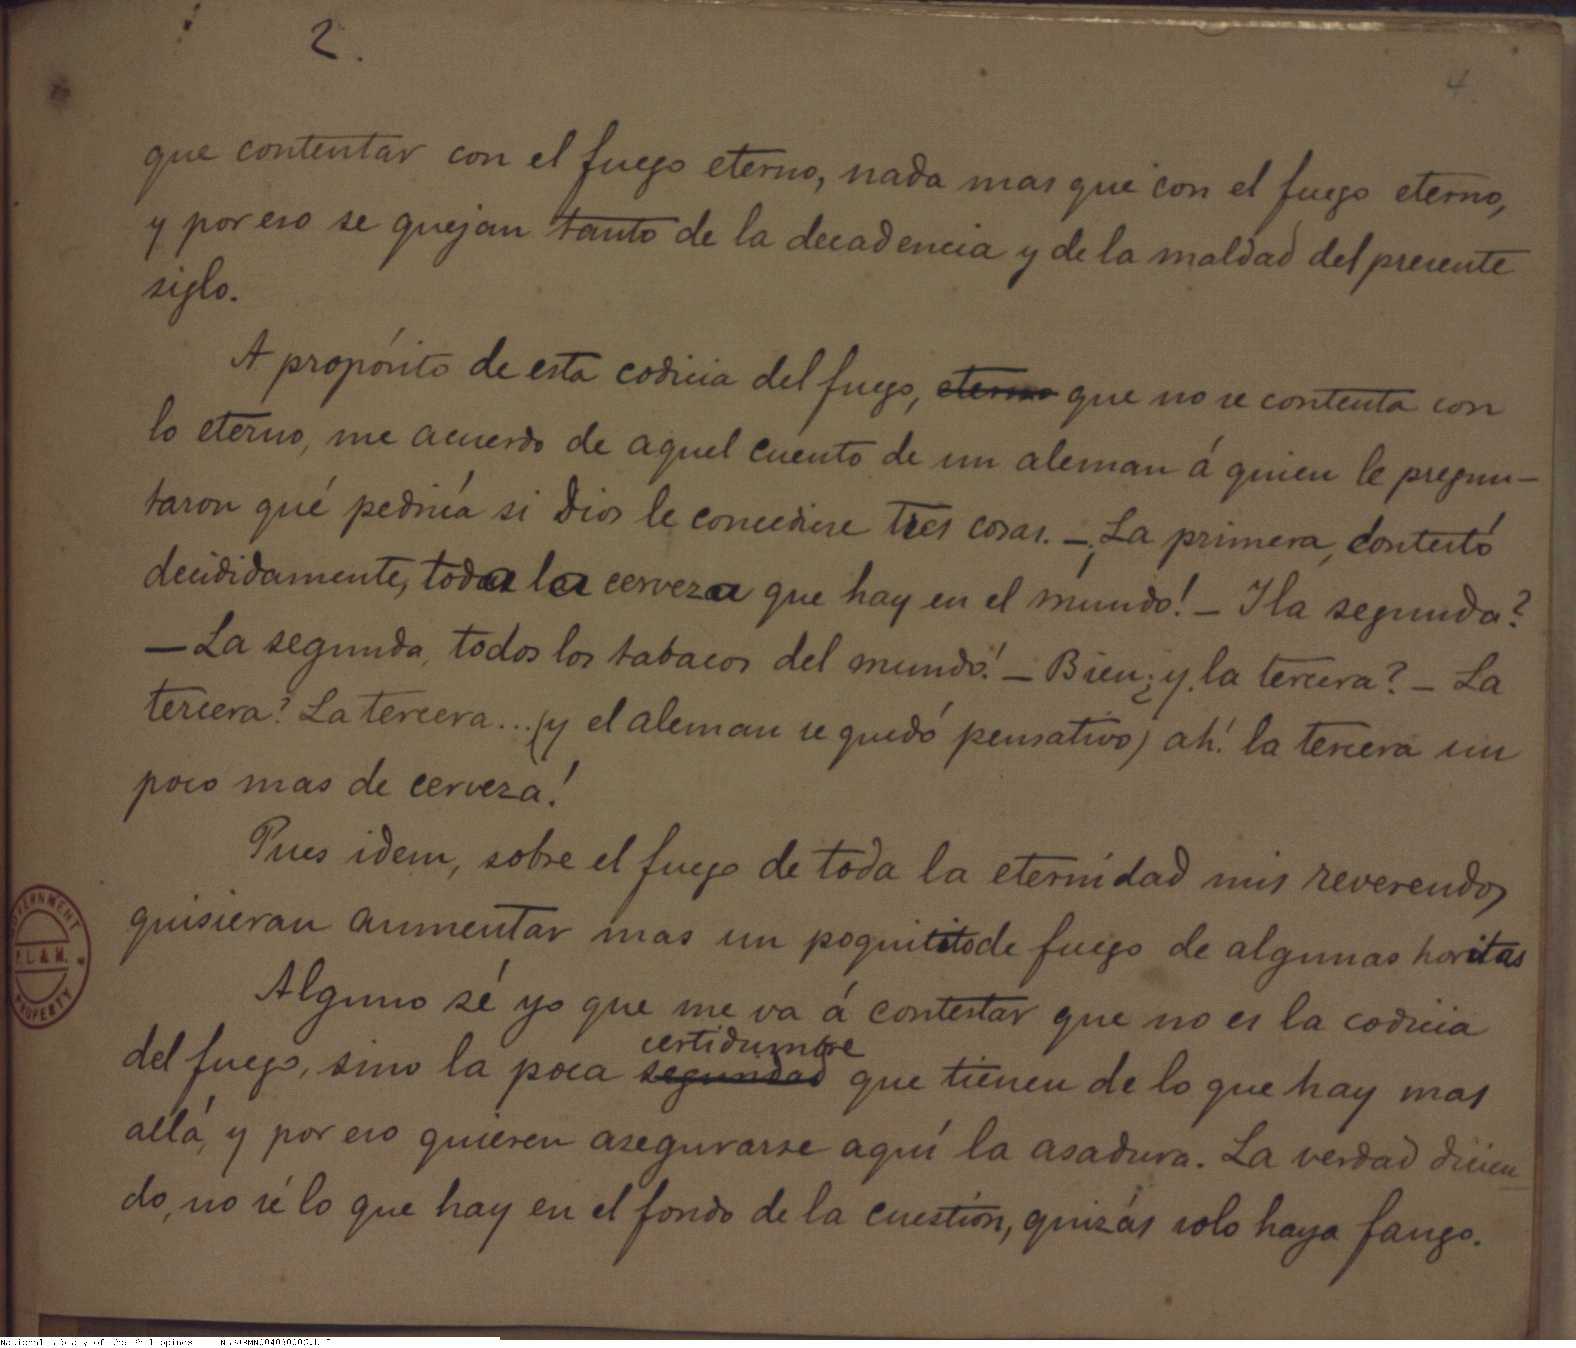 2.
4.
que contentar con el fuego eterno, nada mas que con el fuego eterno,
y por eso se quejan tanto de la decadencia y de la maldad del presente
siglo.
A propósito de esta codicia del fuego, eterno que no se contenta con
lo eterno, me acuerdo de aquel cuento de un aleman á quien le pregun-
taron qué pediría si Dios le concediese tres cosas. —¡La primera, contestó
decididamente, toda la cerveza que hay en el mundo! — Y la segunda?
— La segunda, todos los tabacos del mundo! — Bien ¿y la tercera? — La
tercera? La tercera... (y el aleman se quedó pensativo) ah! la tercera un
poco mas de cerveza!
Pues idem, sobre el fuego de toda la eternidad mis reverendos
quisieran aumentar mas un poquitito de fuego de algunas horitas
Alguno sé yo que me va á contestar que no es la codicia
certidumbre
del fuego, sino la poca seguridad que tienen de lo que hay mas
allá, y por eso quieren asegurarse aquí la asadura. La verdad dicien
do, no sé lo que hay en el fondo de la cuestión, quizás solo haya fango.
GOVERNMENT
P.L.& M.
PROPERTY
National Library of the Philippines